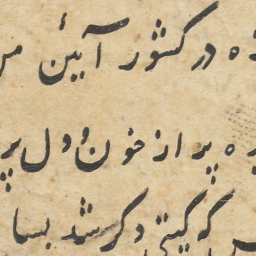 در کشور آیین
پر از خون و دل پر
که گیتی دگر شد بسا